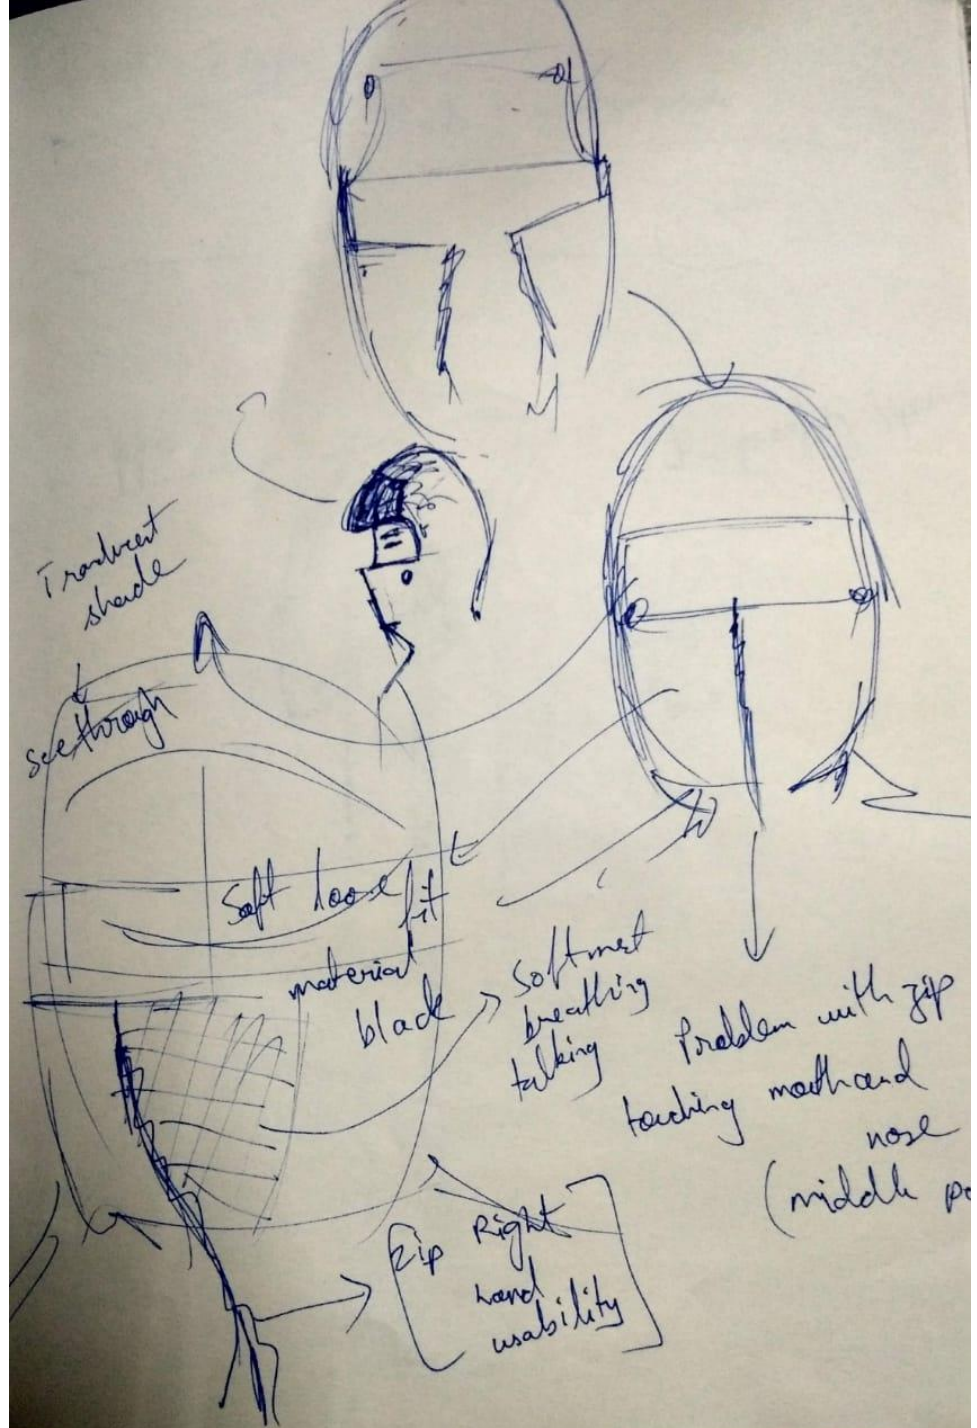 shade
seethrough
Soft loose fit
material
black
Soft
breathing
talking
Problem with zip
touching mouth and
nose
(middle
Zip Right
hand
usability